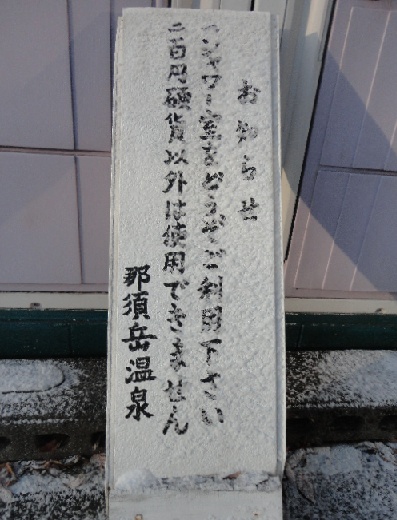 お知らせ
一、シャワー室をどうぞご利用下さい
一、百円硬貨以外は使用できません
那須岳温泉